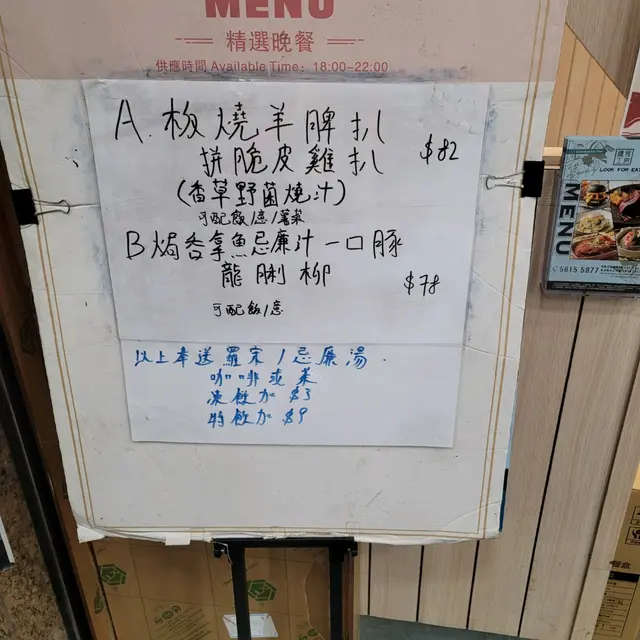 MENU
精選晚餐
供應時間 Available Time: 18:00-22:00
A. 板燒羊脾扒
拼脆皮雞扒 $82
(香草野菌燒汁)
可配飯/意/薯菜
B 焗吞拿魚忌廉汁一口豚
龍脷柳 $78
可配飯/意
以上奉送羅宋/忌廉湯.
咖啡或茶
凍飲加 $3
特飲加 $9
LOOK FOR EA
MENU
5615 5877